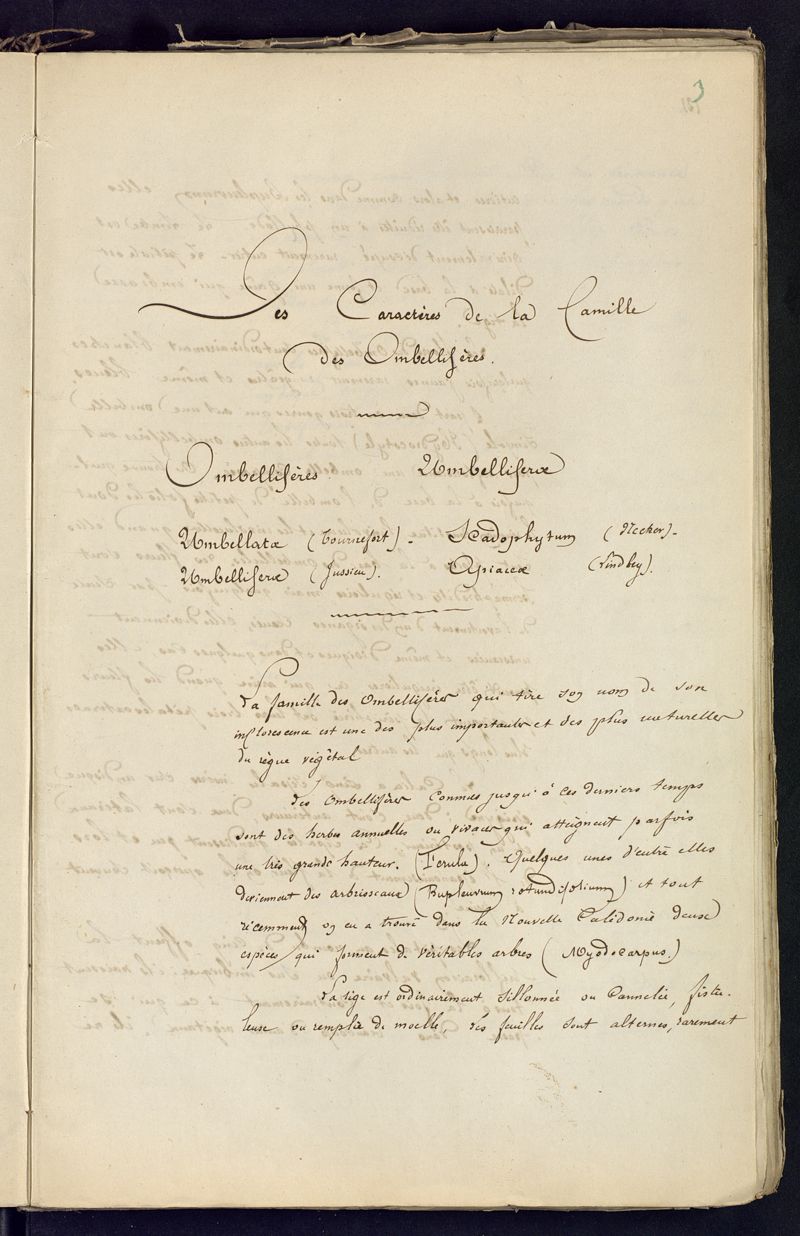 3
Des Caractères de la Famille
des Ombellifères.
Ombellifères Umbelliferæ
Umbellatæ (Tournefort). - Sciadophytum (Necker). -
Umbelliferæ (Jussieu). Apiaceæ (Lindley).
La famille des Ombellifères qui tire son nom de son
inflorescence est une des plus importantes et des plus naturelles
du règne végétal
Les Ombellifères connues jusqu'à ces derniers temps
sont des herbes annuelles ou vivaces qui atteignent parfois
une très grande hauteur. (Ferula). Quelques unes d'entre elles
deviennent des arbrisseaux (Bupleurum rotundifolium) et tout
récemment on en a trouvé dans la Nouvelle Calédonie deux
espèces qui forment de véritables arbres (Myodocarpus.)
La tige est ordinairement sillonnée ou cannelée, fistu-
leuse ou remplie de moelle, les feuilles sont alternes, rarement